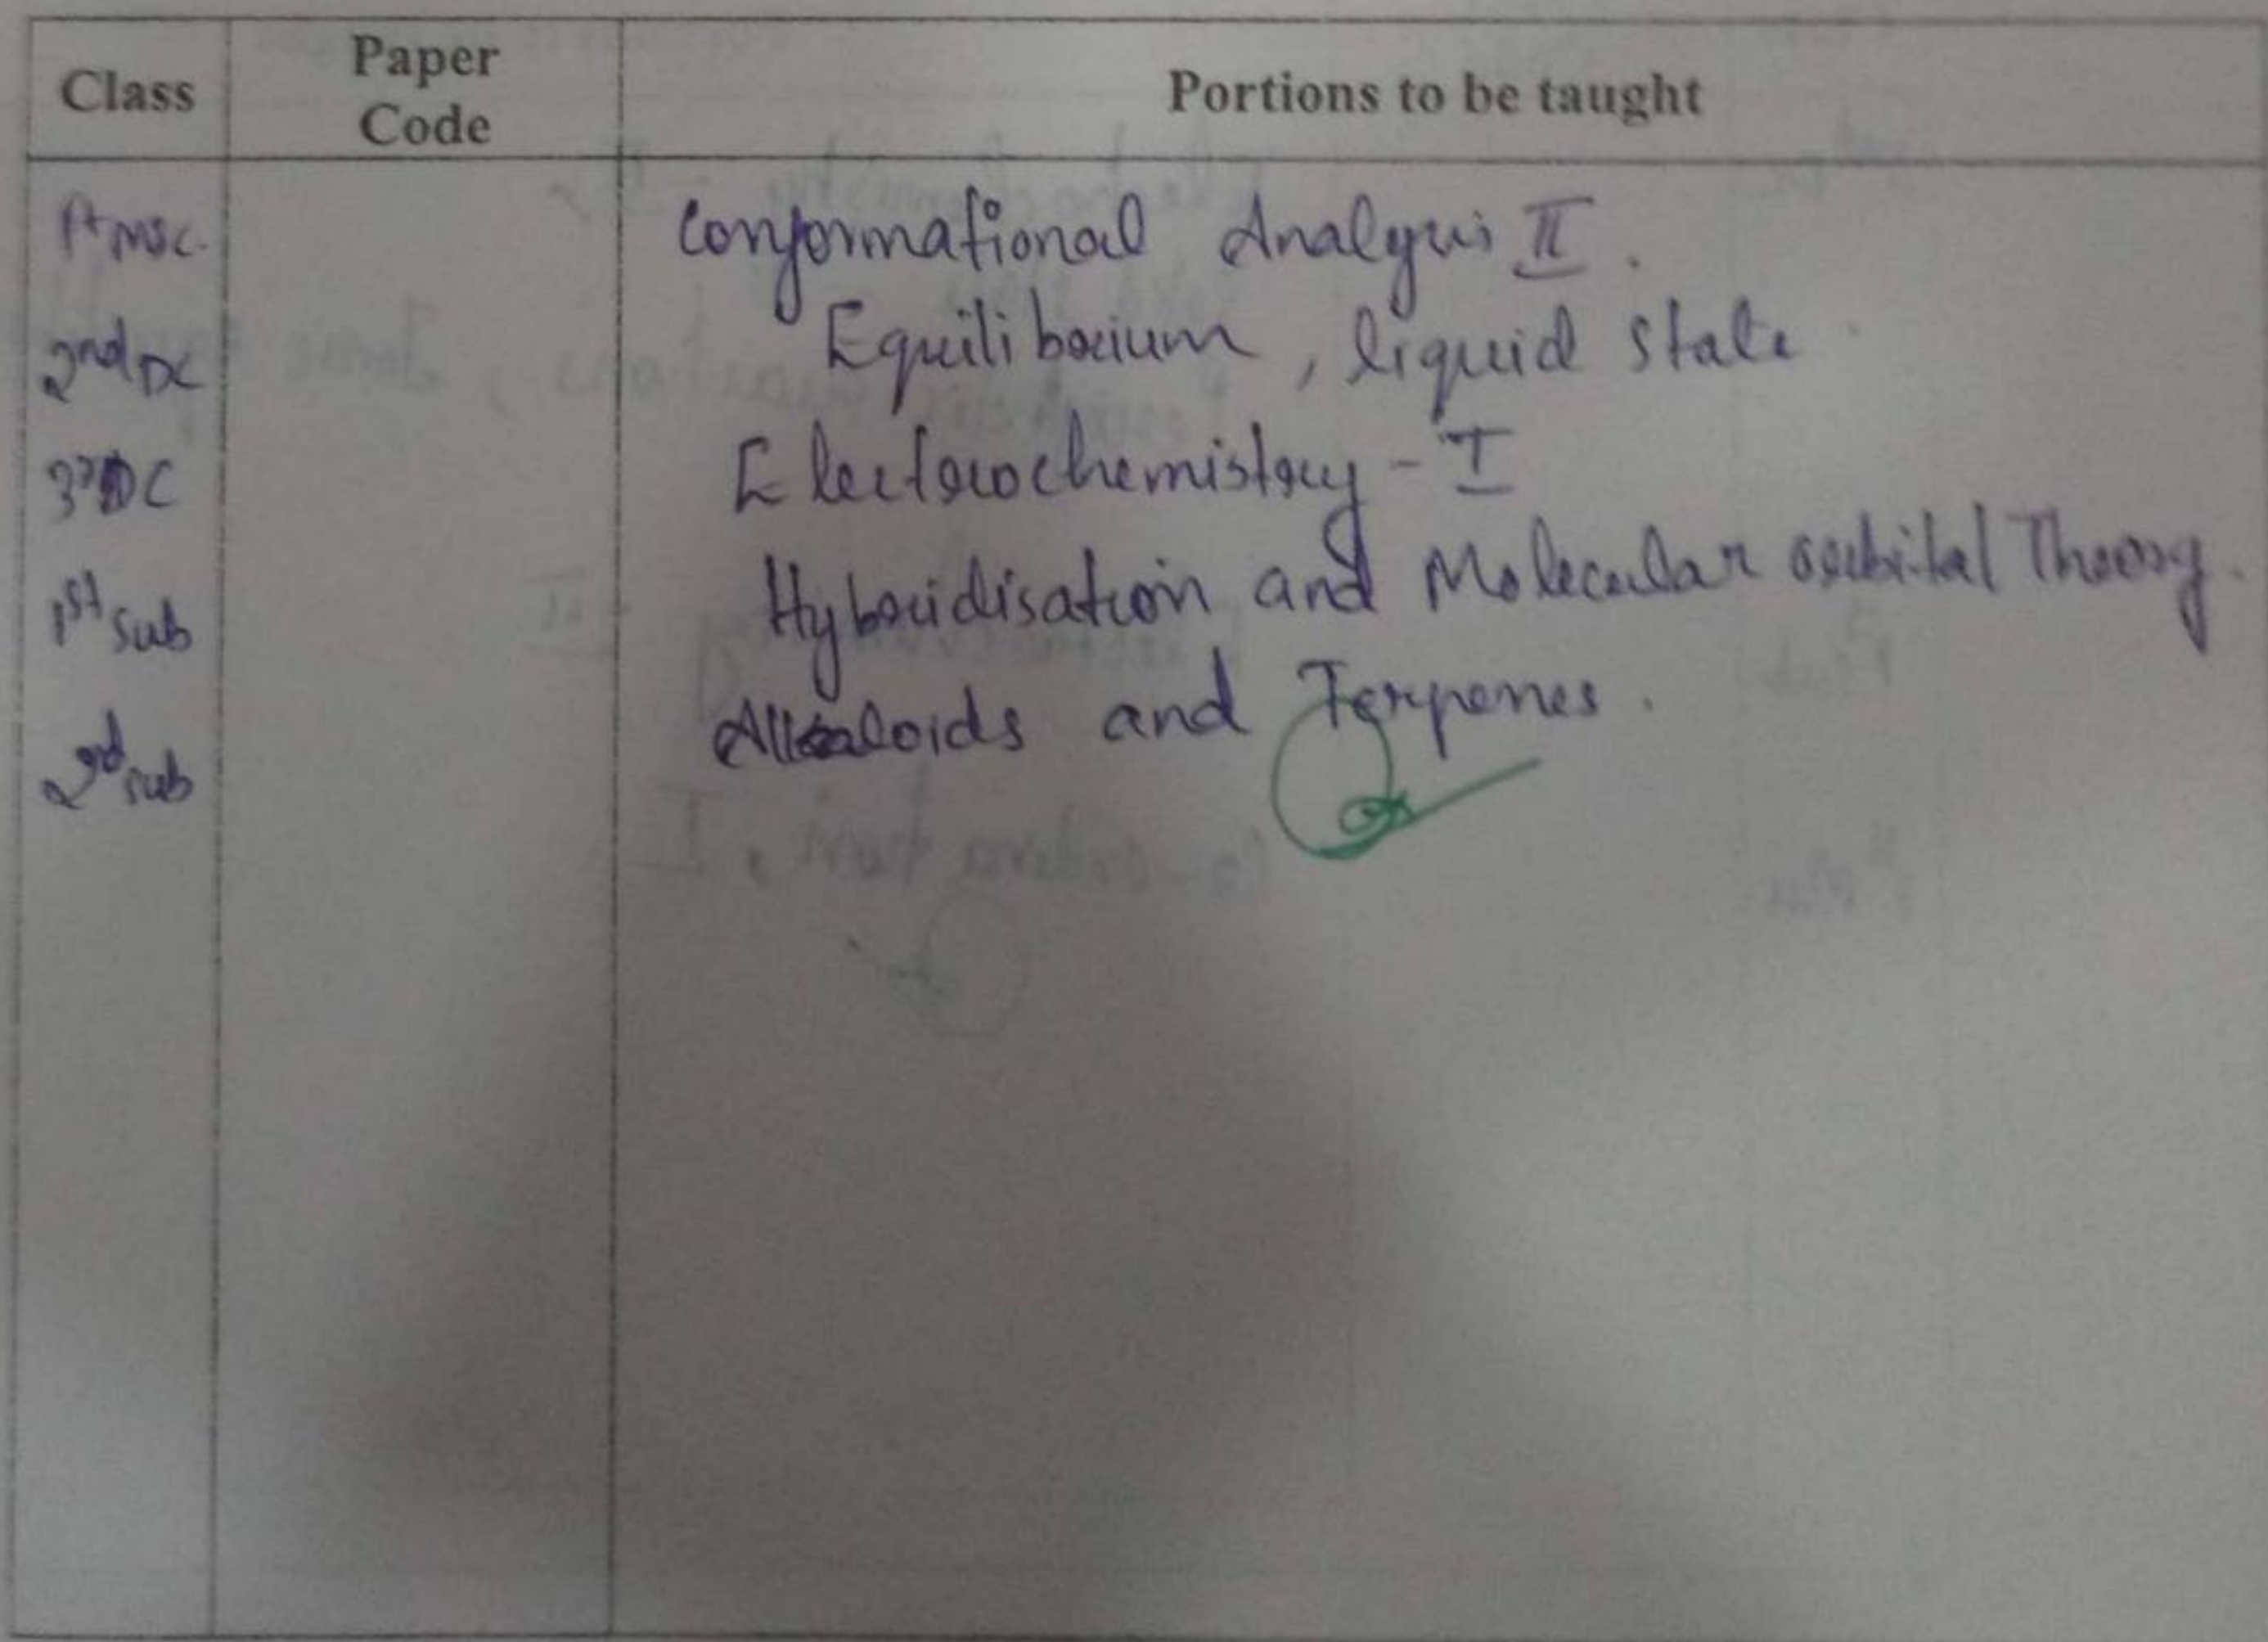 Class Paper Code Portions to be taught
1st MSc. Conformational Analysis II.
2nd DC Equilibrium, liquid state
3rd DC Electrochemistry - I
1st sub Hybridisation and Molecular orbital Theory.
2nd sub Alkaloids and Terpenes.